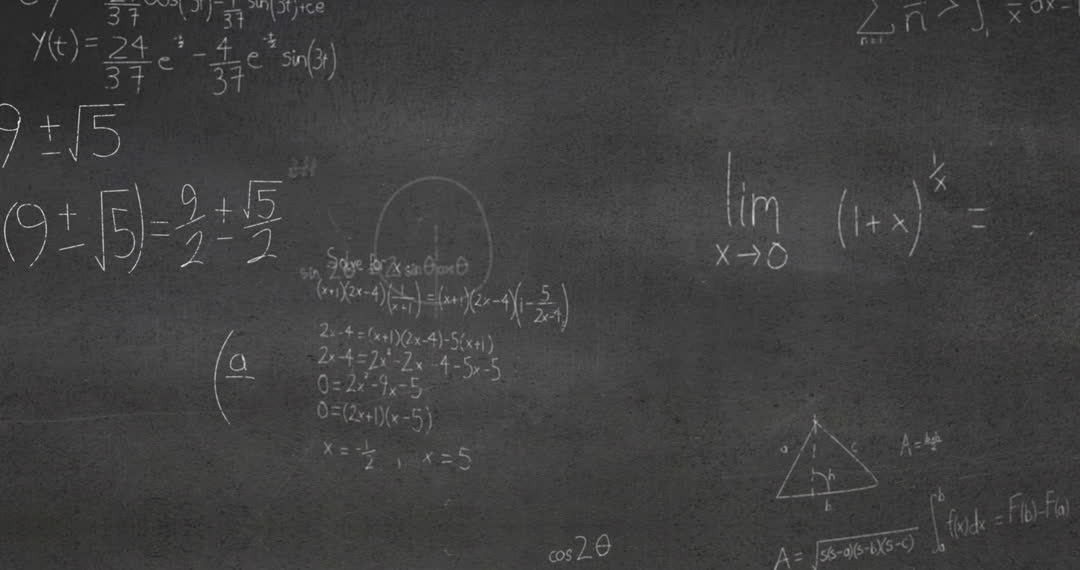 24/37 e^(-t/2) cos(3t) - 4/37 sin(3t)+ce
Y(t) = 24/37 e^(-t/2) - 4/37 e^(-t/2) sin(3t)
∑ n=1 1/n > ∫ 1 1/x dx
9 ± √5
(9 ± √5) = 9/2 ± √5/2
lim x→0 (1 + x)^(1/x) =
Solve for x
sin 2θ = 2 sin θ cos θ
(x+1)(2x-4)(1/(x+1)) = (x+1)(2x-4)(1 - 5/(2x-4))
2x-4 = (x+1)(2x-4)-5(x+1)
2x-4 = 2x²-2x-4-5x-5
0 = 2x²-9x-5
0 = (2x+1)(x-5)
x = -1/2 , x = 5
(a
a c
h
b
A = bh/2
∫ a b f(x)dx = F(b)-F(a)
A = √s(s-a)(s-b)(s-c)
cos 2θ